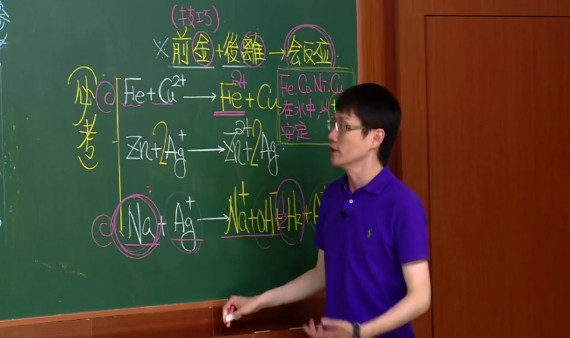 (技巧5)
※前金+後離→会反应
Fe+Cu²⁺→Fe²⁺+Cu
Fe.Co.Ni.Cu
在水中,以
安定
(必考)
Zn+2Ag⁺→Zn²⁺+2Ag
Na+Ag⁺→Na⁺+OH⁻+H₂+